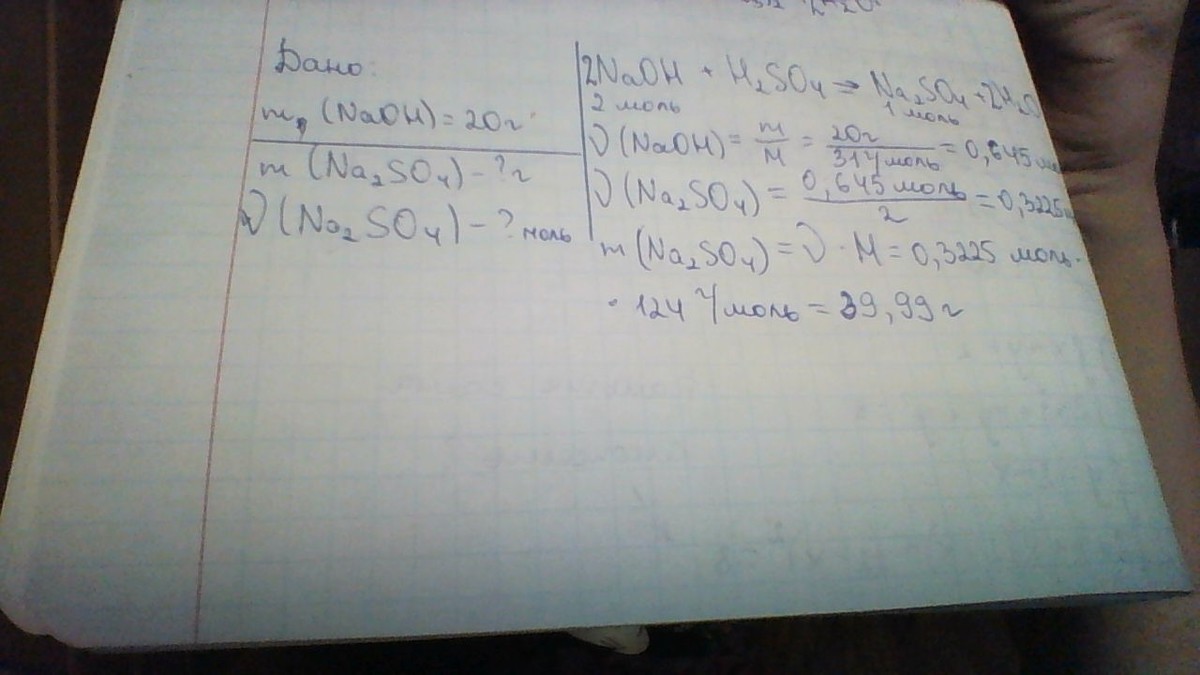 Дано:
m (NaOH) = 20г
m (Na₂SO₄) - ? г
ν (Na₂SO₄) - ? моль
2NaOH + H₂SO₄ → Na₂SO₄ + 2H₂O
2 моль 1 моль
ν (NaOH) = m/M = 20г/31 г/моль = 0,645
ν (Na₂SO₄) = 0,645 моль/2 = 0,3225
m (Na₂SO₄) = ν · M = 0,3225 моль ·
· 124 г/моль = 39,99 г